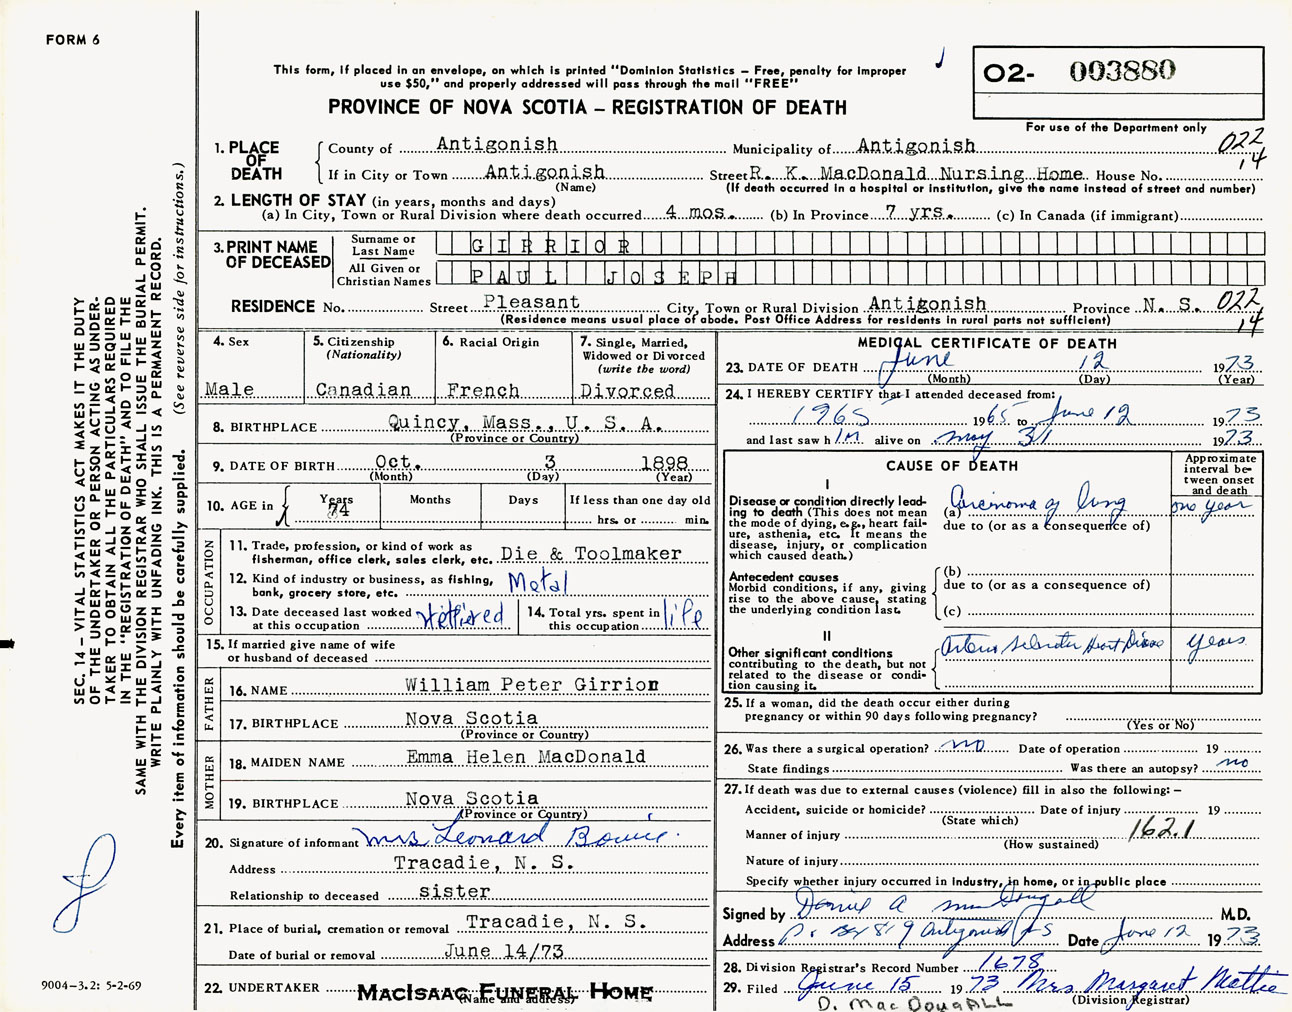 FORM 6
This form, if placed in an envelope, on which is printed "Dominion Statistics – Free, penalty for improper
use $50," and properly addressed will pass through the mail "FREE"
PROVINCE OF NOVA SCOTIA – REGISTRATION OF DEATH
O2- 003880
For use of the Department only
022
14
1. PLACE OF DEATH
County of Antigonish Municipality of Antigonish
If in City or Town Antigonish Street R. K. MacDonald Nursing Home House No.
(Name) (If death occurred in a hospital or institution, give the name instead of street and number)
2. LENGTH OF STAY (in years, months and days)
(a) In City, Town or Rural Division where death occurred 4 mos. (b) In Province 7 yrs. (c) In Canada (if immigrant)
3. PRINT NAME OF DECEASED
Surname or Last Name GIRRIOR
All Given or Christian Names PAUL JOSEPH
RESIDENCE No. Street Pleasant City, Town or Rural Division Antigonish Province N. S. 022
14
(Residence means usual place of abode. Post Office Address for residents in rural parts not sufficient)
4. Sex
Male
5. Citizenship
(Nationality)
Canadian
6. Racial Origin
French
7. Single, Married,
Widowed or Divorced
(write the word)
Divorced
8. BIRTHPLACE Quincy, Mass., U. S. A.
(Province or Country)
9. DATE OF BIRTH Oct. 3 1898
(Month) (Day) (Year)
10. AGE in Years Months Days If less than one day old
74 hrs. or min.
OCCUPATION
11. Trade, profession, or kind of work as
fisherman, office clerk, sales clerk, etc. Die & Toolmaker
12. Kind of industry or business, as fishing,
bank, grocery store, etc. Metal
13. Date deceased last worked
at this occupation
14. Total yrs. spent in
this occupation life
15. If married give name of wife
or husband of deceased
FATHER
16. NAME William Peter Girrior
17. BIRTHPLACE Nova Scotia
(Province or Country)
MOTHER
18. MAIDEN NAME Emma Helen MacDonald
19. BIRTHPLACE Nova Scotia
(Province or Country)
20. Signature of informant Mrs Leonard Bowie
Address Tracadie, N. S.
Relationship to deceased sister
21. Place of burial, cremation or removal Tracadie, N. S.
Date of burial or removal June 14/73
22. UNDERTAKER MACISAAC FUNERAL HOME
(Name and address)
MEDICAL CERTIFICATE OF DEATH
23. DATE OF DEATH June 12 1973
(Month) (Day) (Year)
24. I HEREBY CERTIFY that I attended deceased from:
1965 1965 to June 12 1973
and last saw him alive on May 31 1973
CAUSE OF DEATH
Approximate
interval be-
tween onset
and death
I
Disease or condition directly lead-
ing to death (This does not mean
the mode of dying, e.g., heart fail-
ure, asthenia, etc. It means the
disease, injury, or complication
which caused death.)
(a) Carcinoma of lung one year
due to (or as a consequence of)
Antecedent causes
Morbid conditions, if any, giving
rise to the above cause, stating
the underlying condition last.
(b)
due to (or as a consequence of)
(c)
II
Other significant conditions
contributing to the death, but not
related to the disease or condi-
tion causing it.
Heart Disease years
25. If a woman, did the death occur either during
pregnancy or within 90 days following pregnancy?
(Yes or No)
26. Was there a surgical operation? no Date of operation 19
State findings Was there an autopsy? no
27. If death was due to external causes (violence) fill in also the following: –
Accident, suicide or homicide? Date of injury 19
(State which)
Manner of injury 162.1
(How sustained)
Nature of injury
Specify whether injury occurred in industry, in home, or in public place
Signed by Daniel A MacDougall M.D.
Address P.O. Box 819 Antigonish NS Date June 12 1973
28. Division Registrar's Record Number 1678
29. Filed June 15 1973 Mrs Margaret Mattie
(Division Registrar)
D. MacDougALL
SEC. 14 – VITAL STATISTICS ACT MAKES IT THE DUTY
OF THE UNDERTAKER OR PERSON ACTING AS UNDER-
TAKER TO OBTAIN ALL THE PARTICULARS REQUIRED
IN THE "REGISTRATION OF DEATH" AND TO FILE THE
SAME WITH THE DIVISION REGISTRAR WHO SHALL ISSUE THE BURIAL PERMIT.
WRITE PLAINLY WITH UNFADING INK. THIS IS A PERMANENT RECORD.
Every item of information should be carefully supplied. (See reverse side for instructions.)
9004–3.2: 5-2-69